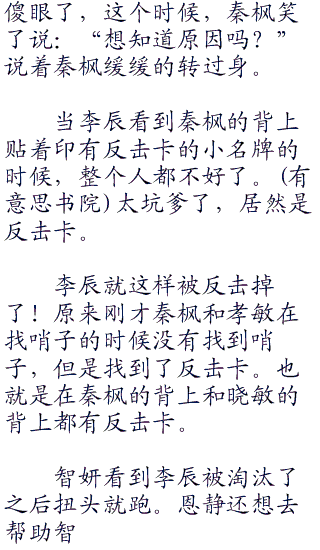 傻眼了，这个时候，秦枫笑
了说：“想知道原因吗？”
说着秦枫缓缓的转过身。
当李辰看到秦枫的背上
贴着印有反击卡的小名牌的
时候，整个人都不好了。(有
意思书院)太坑爹了，居然是
反击卡。
李辰就这样被反击掉
了！原来刚才秦枫和孝敏在
找哨子的时候没有找到哨
子，但是找到了反击卡。也
就是在秦枫的背上和晓敏的
背上都有反击卡。
智妍看到李辰被淘汰了
之后扭头就跑。恩静还想去
帮助智